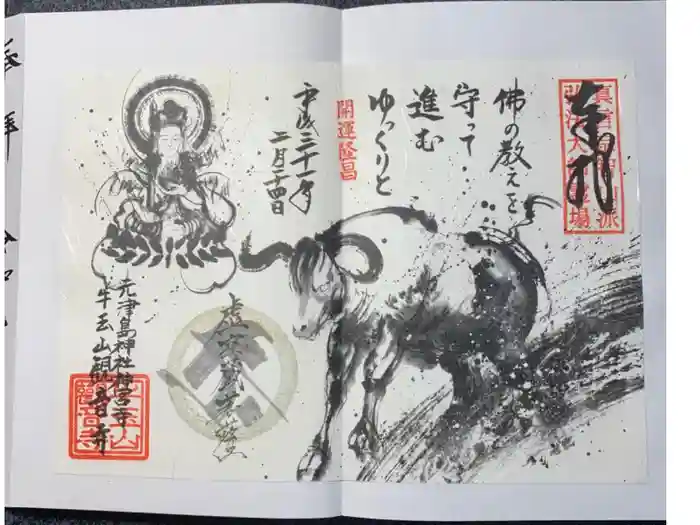 奉拝
佛の教えを
守って
進む
ゆっくりと
開運隆昌
平成三十一年
二月二十四日
虚空蔵菩薩
元津島神社神宮寺
牛玉山観音寺